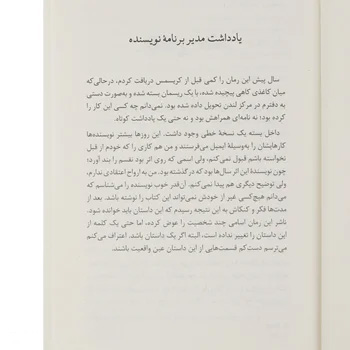 یادداشت مدیر برنامهٔ نویسنده
سال پیش این رمان را کمی قبل از کریسمس دریافت کردم، درحالی‌که
میان کاغذی کاهی پیچیده شده، با یک ریسمان بسته شده و به‌صورت دستی
به دفترم در مرکز لندن تحویل داده شده بود. نمی‌دانم چه کسی این کار را
کرده بود؛ نه نامه‌ای همراهش بود و نه حتی یک یادداشت کوتاه.
داخل بسته یک نسخهٔ خطی وجود داشت. این روزها بیشتر نویسنده‌ها
کارهایشان را به‌وسیلهٔ ایمیل می‌فرستند و من هم کاری را که خودم از قبل
نخواسته باشم قبول نمی‌کنم، ولی اسمی که روی اثر بود نفسم را بند آورد؛
چون نویسندهٔ این اثر سال‌ها بود که در گذشته بود. من به ارواح اعتقادی ندارم،
ولی توضیح دیگری هم پیدا نمی‌کنم. آن‌قدر خوب نویسنده را می‌شناسم که
می‌دانم هیچ‌کسی غیر از خودش نمی‌تواند این کتاب را نوشته باشد. بعد از
مدت‌ها فکر و کنکاش به این نتیجه رسیدم که این داستان باید خوانده شود.
ناشر این رمان اسامی چند شخصیت را عوض کرده، اما حتی یک کلمه از
این داستان را تغییر نداده است، البته اگر یک داستان باشد. اعتراف می‌کنم
می‌ترسم دست‌کم قسمت‌هایی از این داستان عین واقعیت باشند.